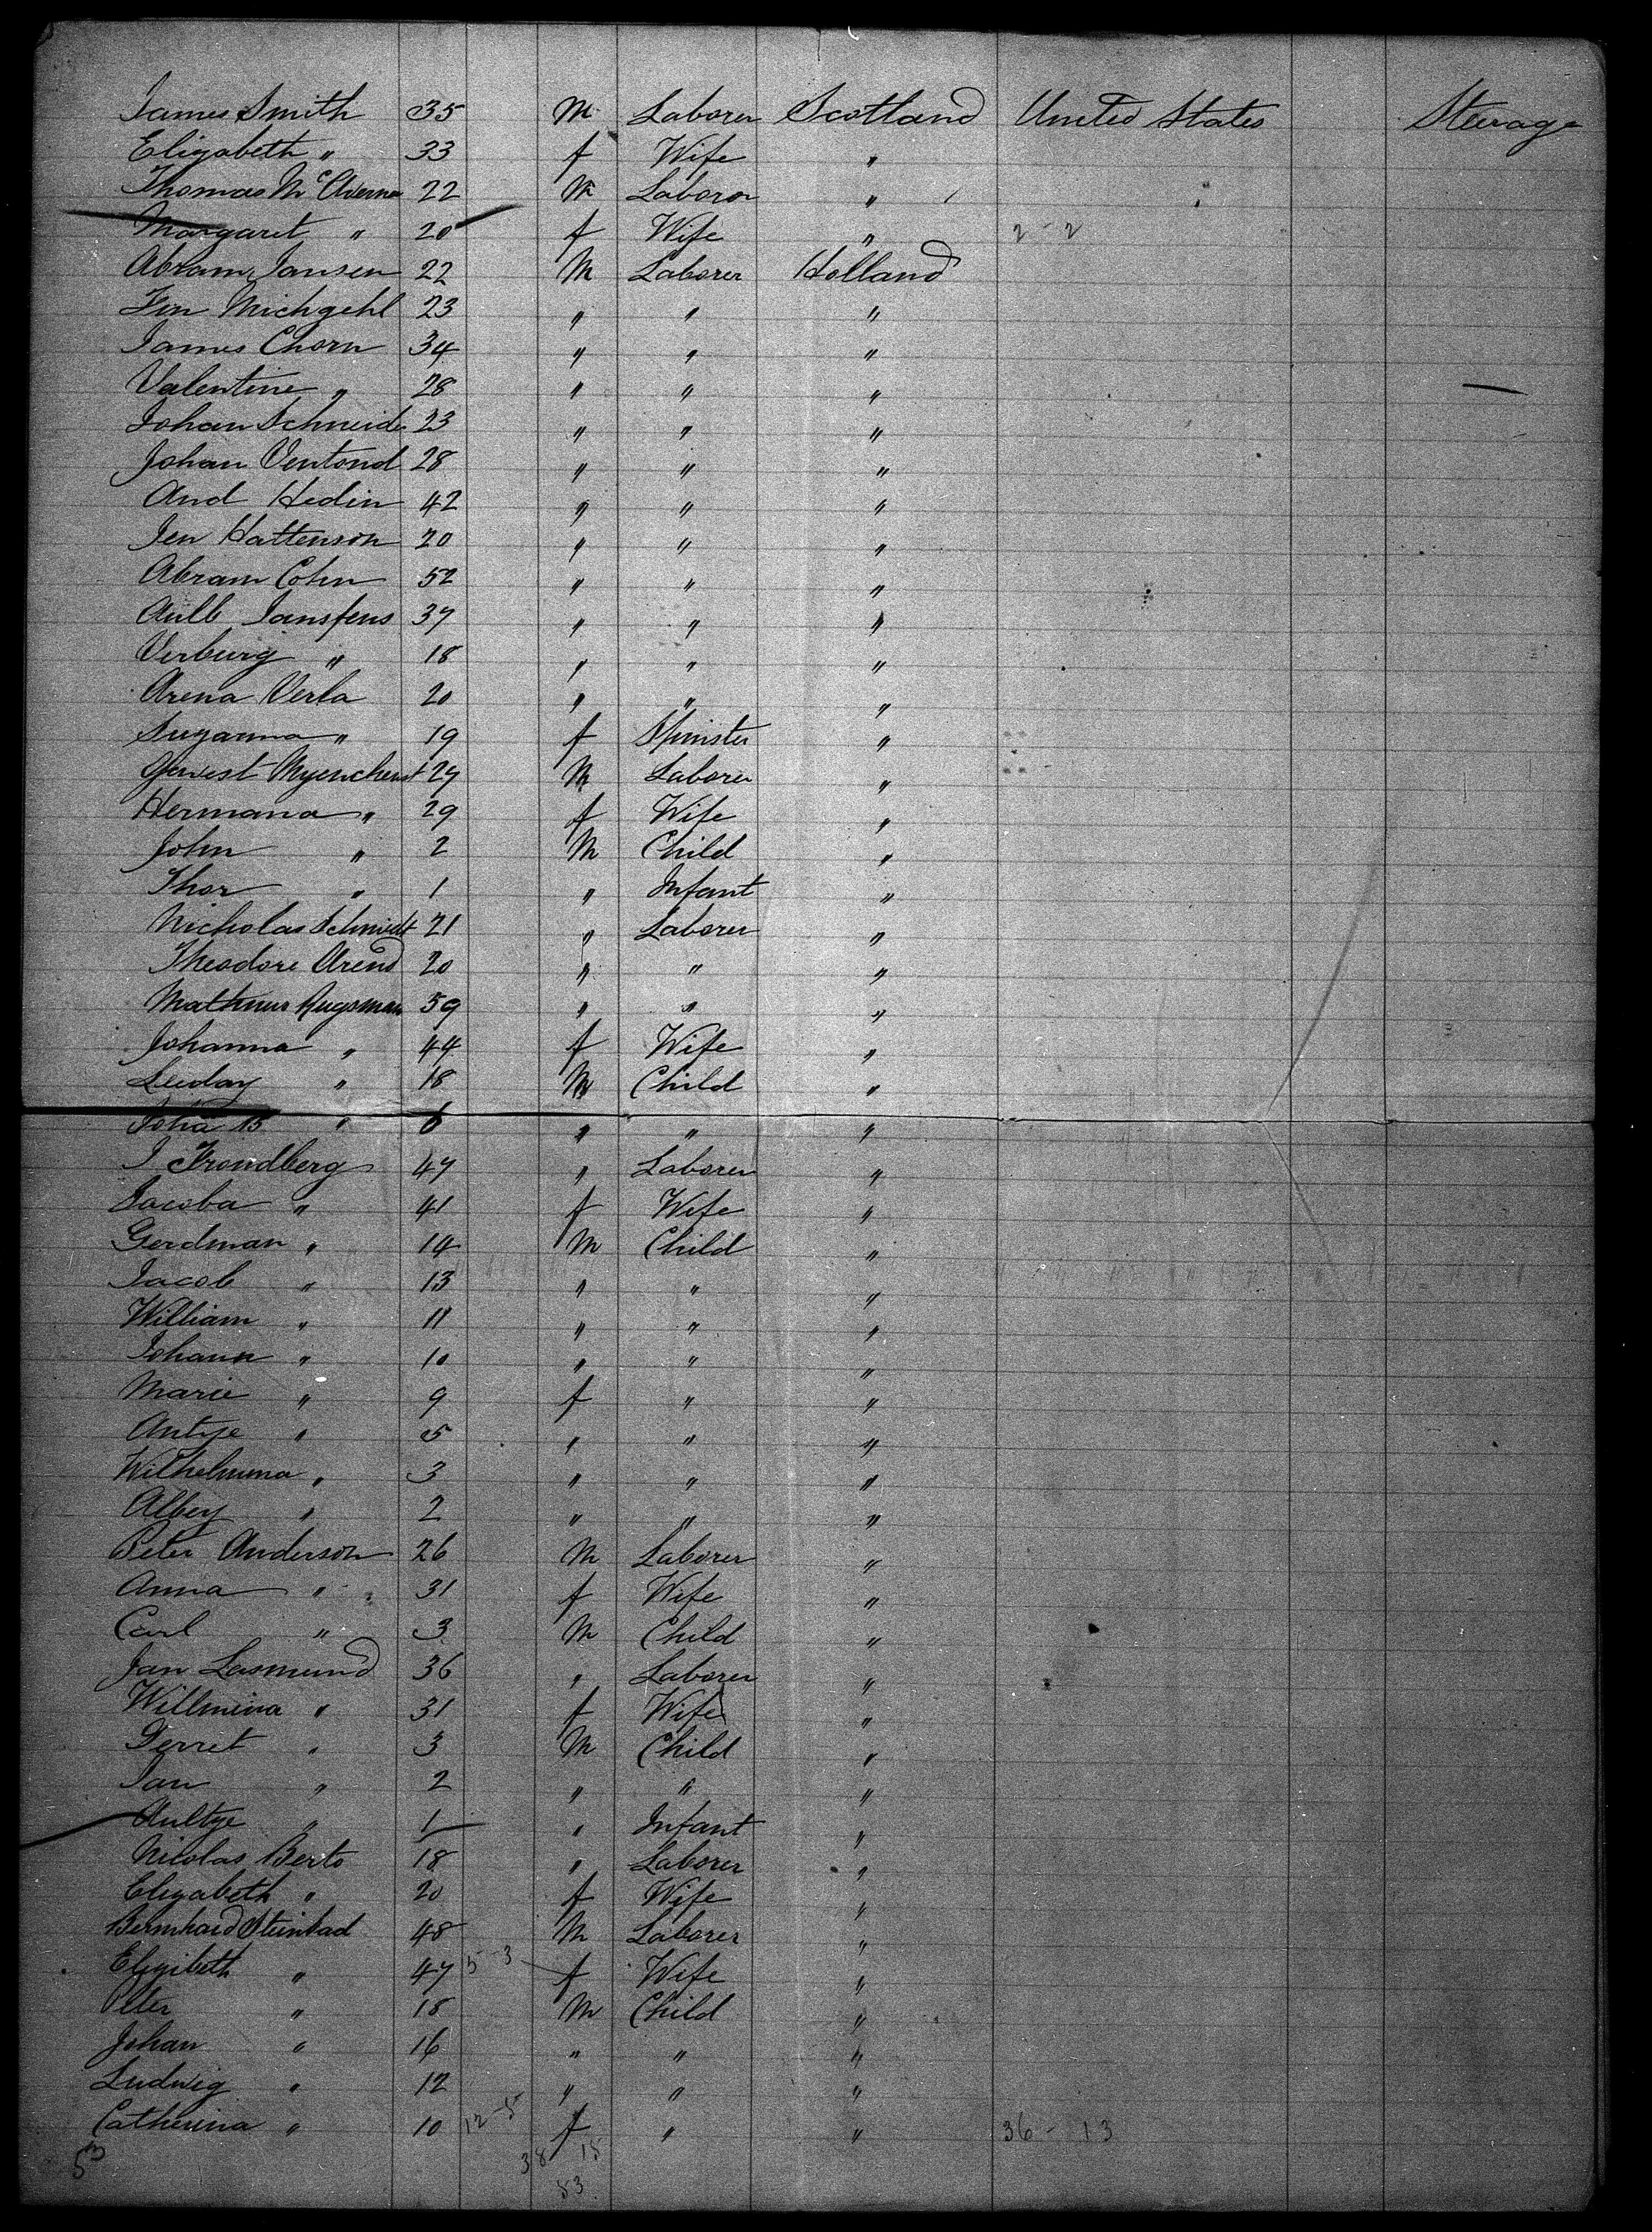 James Smith 35 M Laborer Scotland United States Steerage
Elizabeth " 33 f Wife "
Thomas McAverna 22 M Laboror "
Margaret " 20 f Wife " 2 - 2
Abram Jansen 22 M Laborer Holland
Michgehl 23 " " "
James Chorn 34 " " "
Valentine " 28 " " "
Johan Schneider 23 " " "
Johan Ventond 28 " " "
And Hedin 42 " " "
Jen Hattenson 20 " " "
Abram Cohn 52 " " "
Aulb Jansfens 37 " " "
Verburg " 18 " " "
Arena Verla 20 " " "
Suzanna " 19 f Spinster "
Myenchenst 27 M Laborer "
Hermana " 29 f Wife "
John " 2 M Child "
Thor " 1 " Infant "
Nicholas Schmidt 21 " Laborer "
Theodore Arend 20 " " "
59 " " "
Johanna " 44 f Wife "
" 18 M Child "
" 6 " " "
J Frondberg 47 " Laborer "
Jacoba " 41 f Wife "
Gerdman " 14 M Child "
Jacob " 13 " " "
William " 11 " " "
Johann " 10 " " "
Marie " 9 f " "
Antje " 5 " " "
Wilhelmina " 3 " " "
Albey " 2 " " "
Peter Anderson 26 M Laborer "
Anna " 31 f Wife "
Carl " 3 M Child "
Jan Lasmund 36 " Laborer "
Willmina " 31 f Wife "
Gerret " 3 M Child "
Jan " 2 " " "
Aultje " 1 " Infant "
Nicolas Berto 18 " Laborer "
Elizabeth " 20 f Wife "
Bernhard Steinbad 48 M Laborer "
Elizibeth " 47 5 3 f Wife "
Peter " 18 M Child "
Johan " 16 " " "
Ludwig " 12 " " "
Catherina " 10 12 5 f " " 36 - 13
53 38 15
53